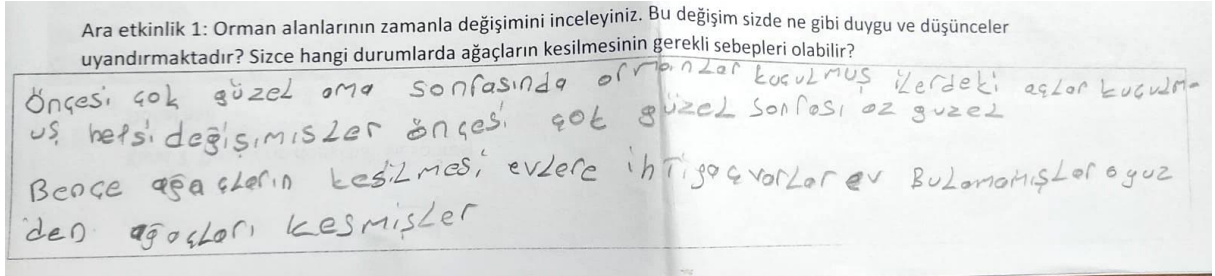 Ara etkinlik 1: Orman alanlarının zamanla değişimini inceleyiniz. Bu değişim sizde ne gibi duygu ve düşünceler
uyandırmaktadır? Sizce hangi durumlarda ağaçların kesilmesinin gerekli sebepleri olabilir?
Önçesi çok güzel ama sonrasında ormanlar kuçulmuş ilerdeki açlar kuçulm-
uş hefsi değişimisler önçesi çok güzel sonrası az guzel
Bençe ağaçların kesilmesi evlere ihtiyaç varlar ev Bulamamışlar oyuz
den ağaçları kesmişler